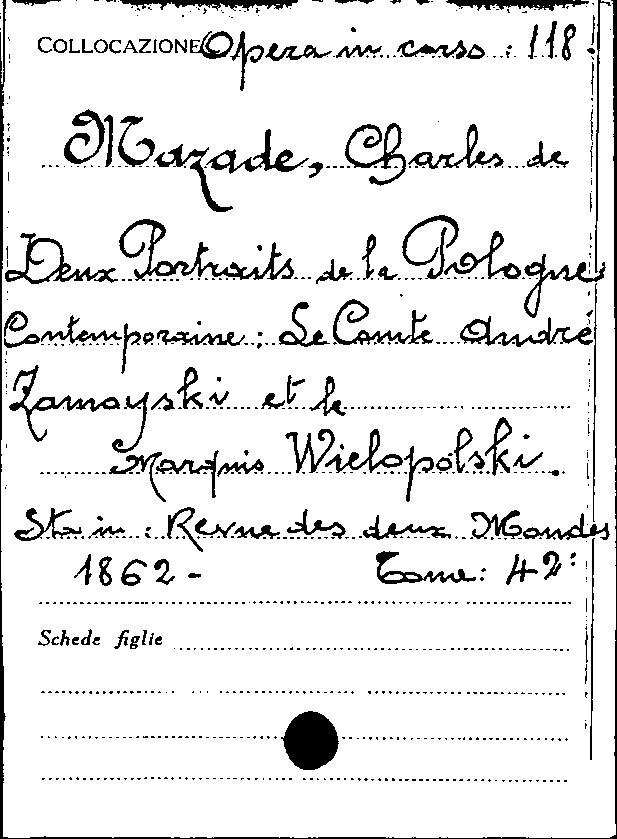 COLLOCAZIONE Opera in corso : 118.
Mazade, Charles de
Deux Portraits de la Pologne
Contemporaine : Le Comte André
Zamoyski et le
Marquis Wielopolski.
Sta in : Revue des deux Mondes
1862 - Tome : 42:
Schede figlie